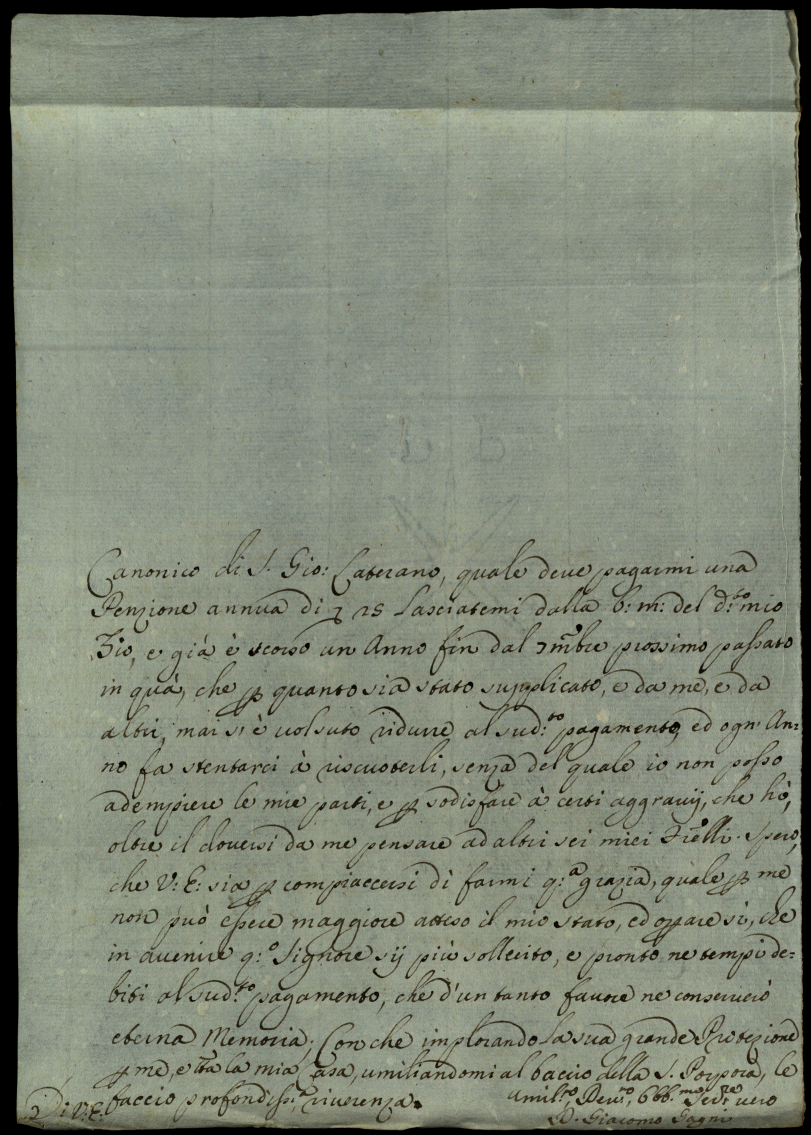 Canonico di S. Gio: Laterano, quale deve pagarmi una
Penzione annua di 25 Lasciatemi dalla b: m: del d:to mio
Zio, e già è scorso un Anno fin dal 7mbre prossimo passato
in quà, che p quanto sia stato supplicato, e da me, e da
altri, mai s'è volsuto ridurre al sud:to pagamento, ed ogn'An=
no fa stentarci à riscuoterli, senza del quale io non posso
adempiere le mie parti, e p sodisfare à certi aggravij, che hò,
oltre il doversi da me pensare ad altri sei miei Frelli. Spero,
che V: E: sia p compiaccersi di farmi q:a grazia, quale p me
non può essere maggiore atteso il mio stato, ed oprare si, che
in avenire q:o Signore sij più sollecito, e pronto ne tempi de=
biti al sud:to pagamento, che d'un tanto favore ne conserverò
eterna Memoria; Con che implorando la sua grande Protezione
p me, e tta la mia Casa, umiliandomi al baccio della S. Porpora, le
faccio profondiss:a riverenza.
Di V: E:
Umil:mo, Dev:mo, Obb:mo Ser:re vero
D. Giacomo Gagni